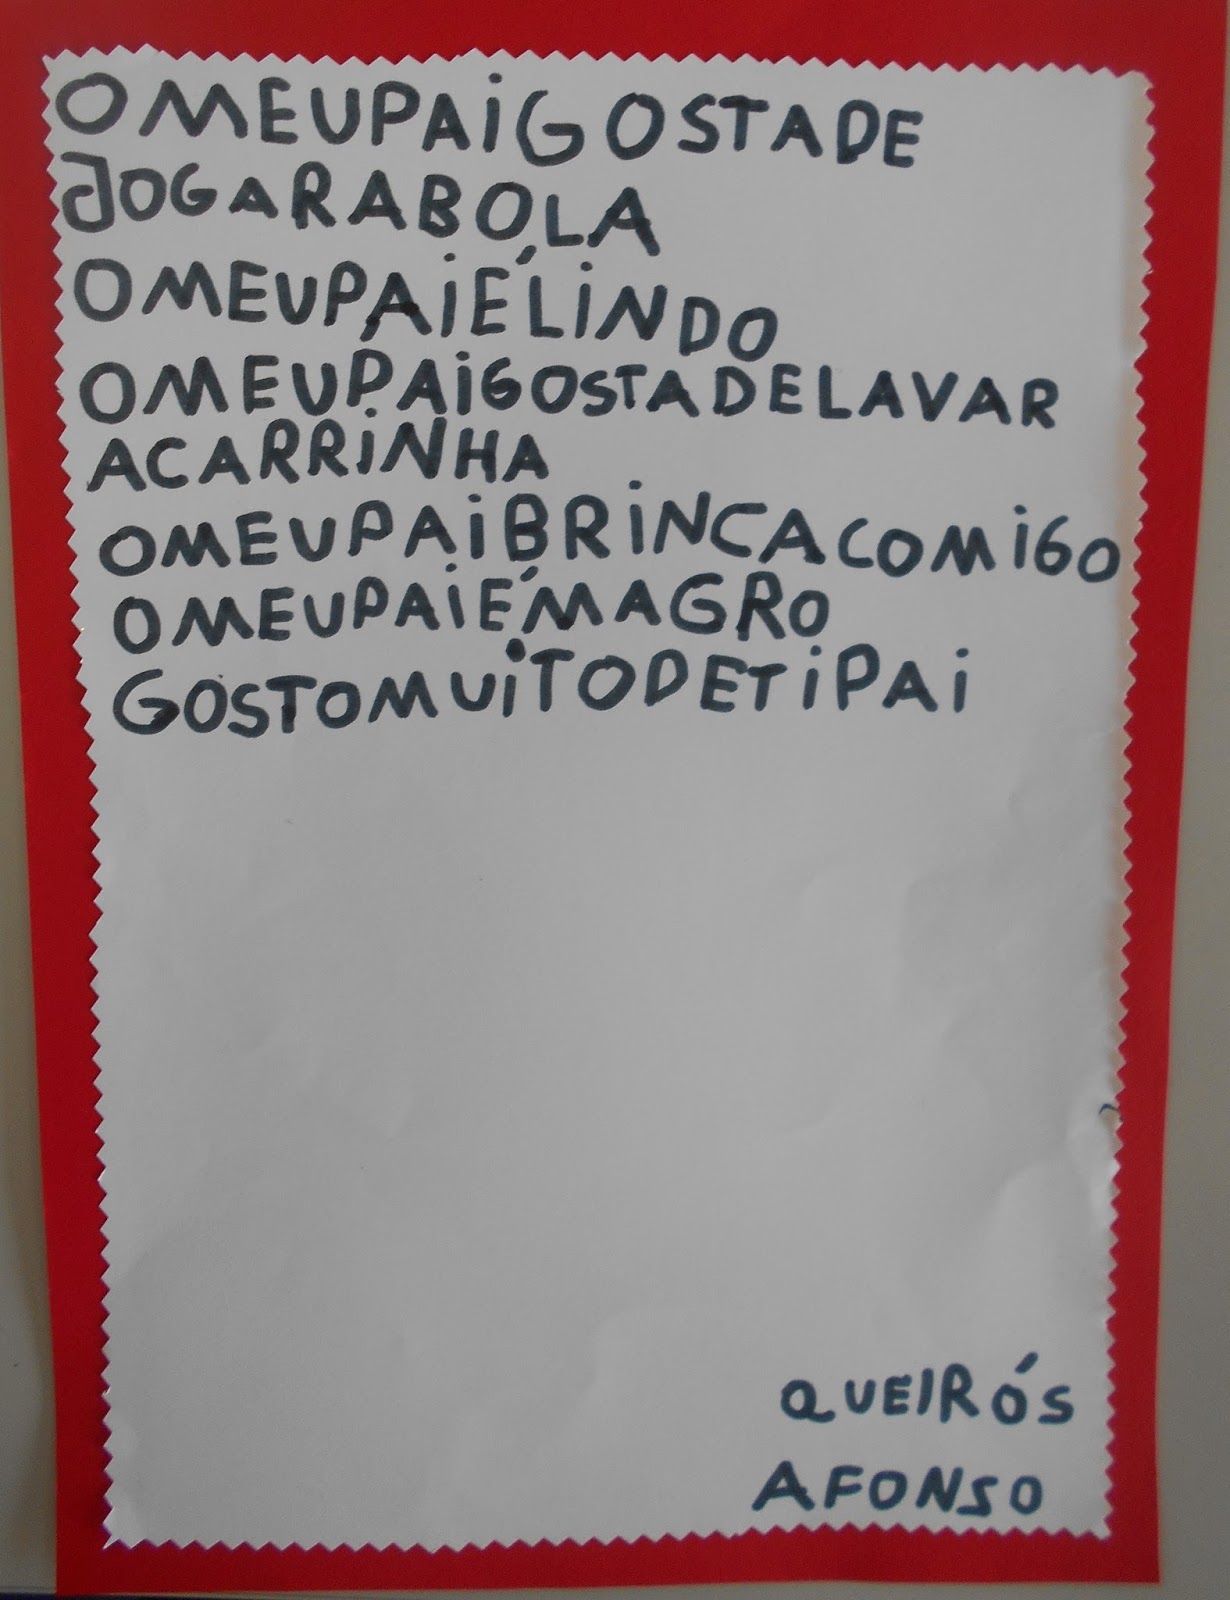 OMEUPAiGOSTADE
JOGARABOLA
OMEUPAiÉLiNDO
OMEUPAiGOSTADELAVAR
ACARRiNHA
OMEUPAiBRiNCACOMiGO
OMEUPAiÉMAGRO
GOSTOMUiTODETiPAi
QUEIRÓS
AFONSO